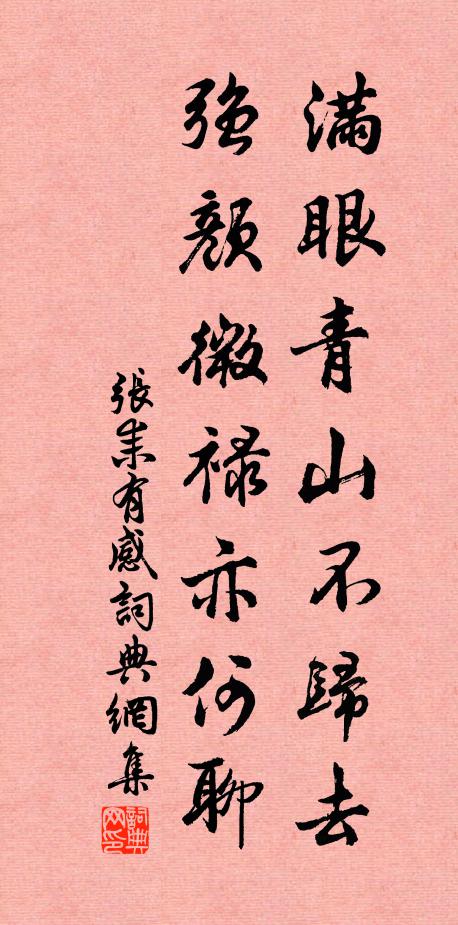 滿眼青山不歸去
強顏微祿亦何聊
張耒有感詞典網集
詞典网印